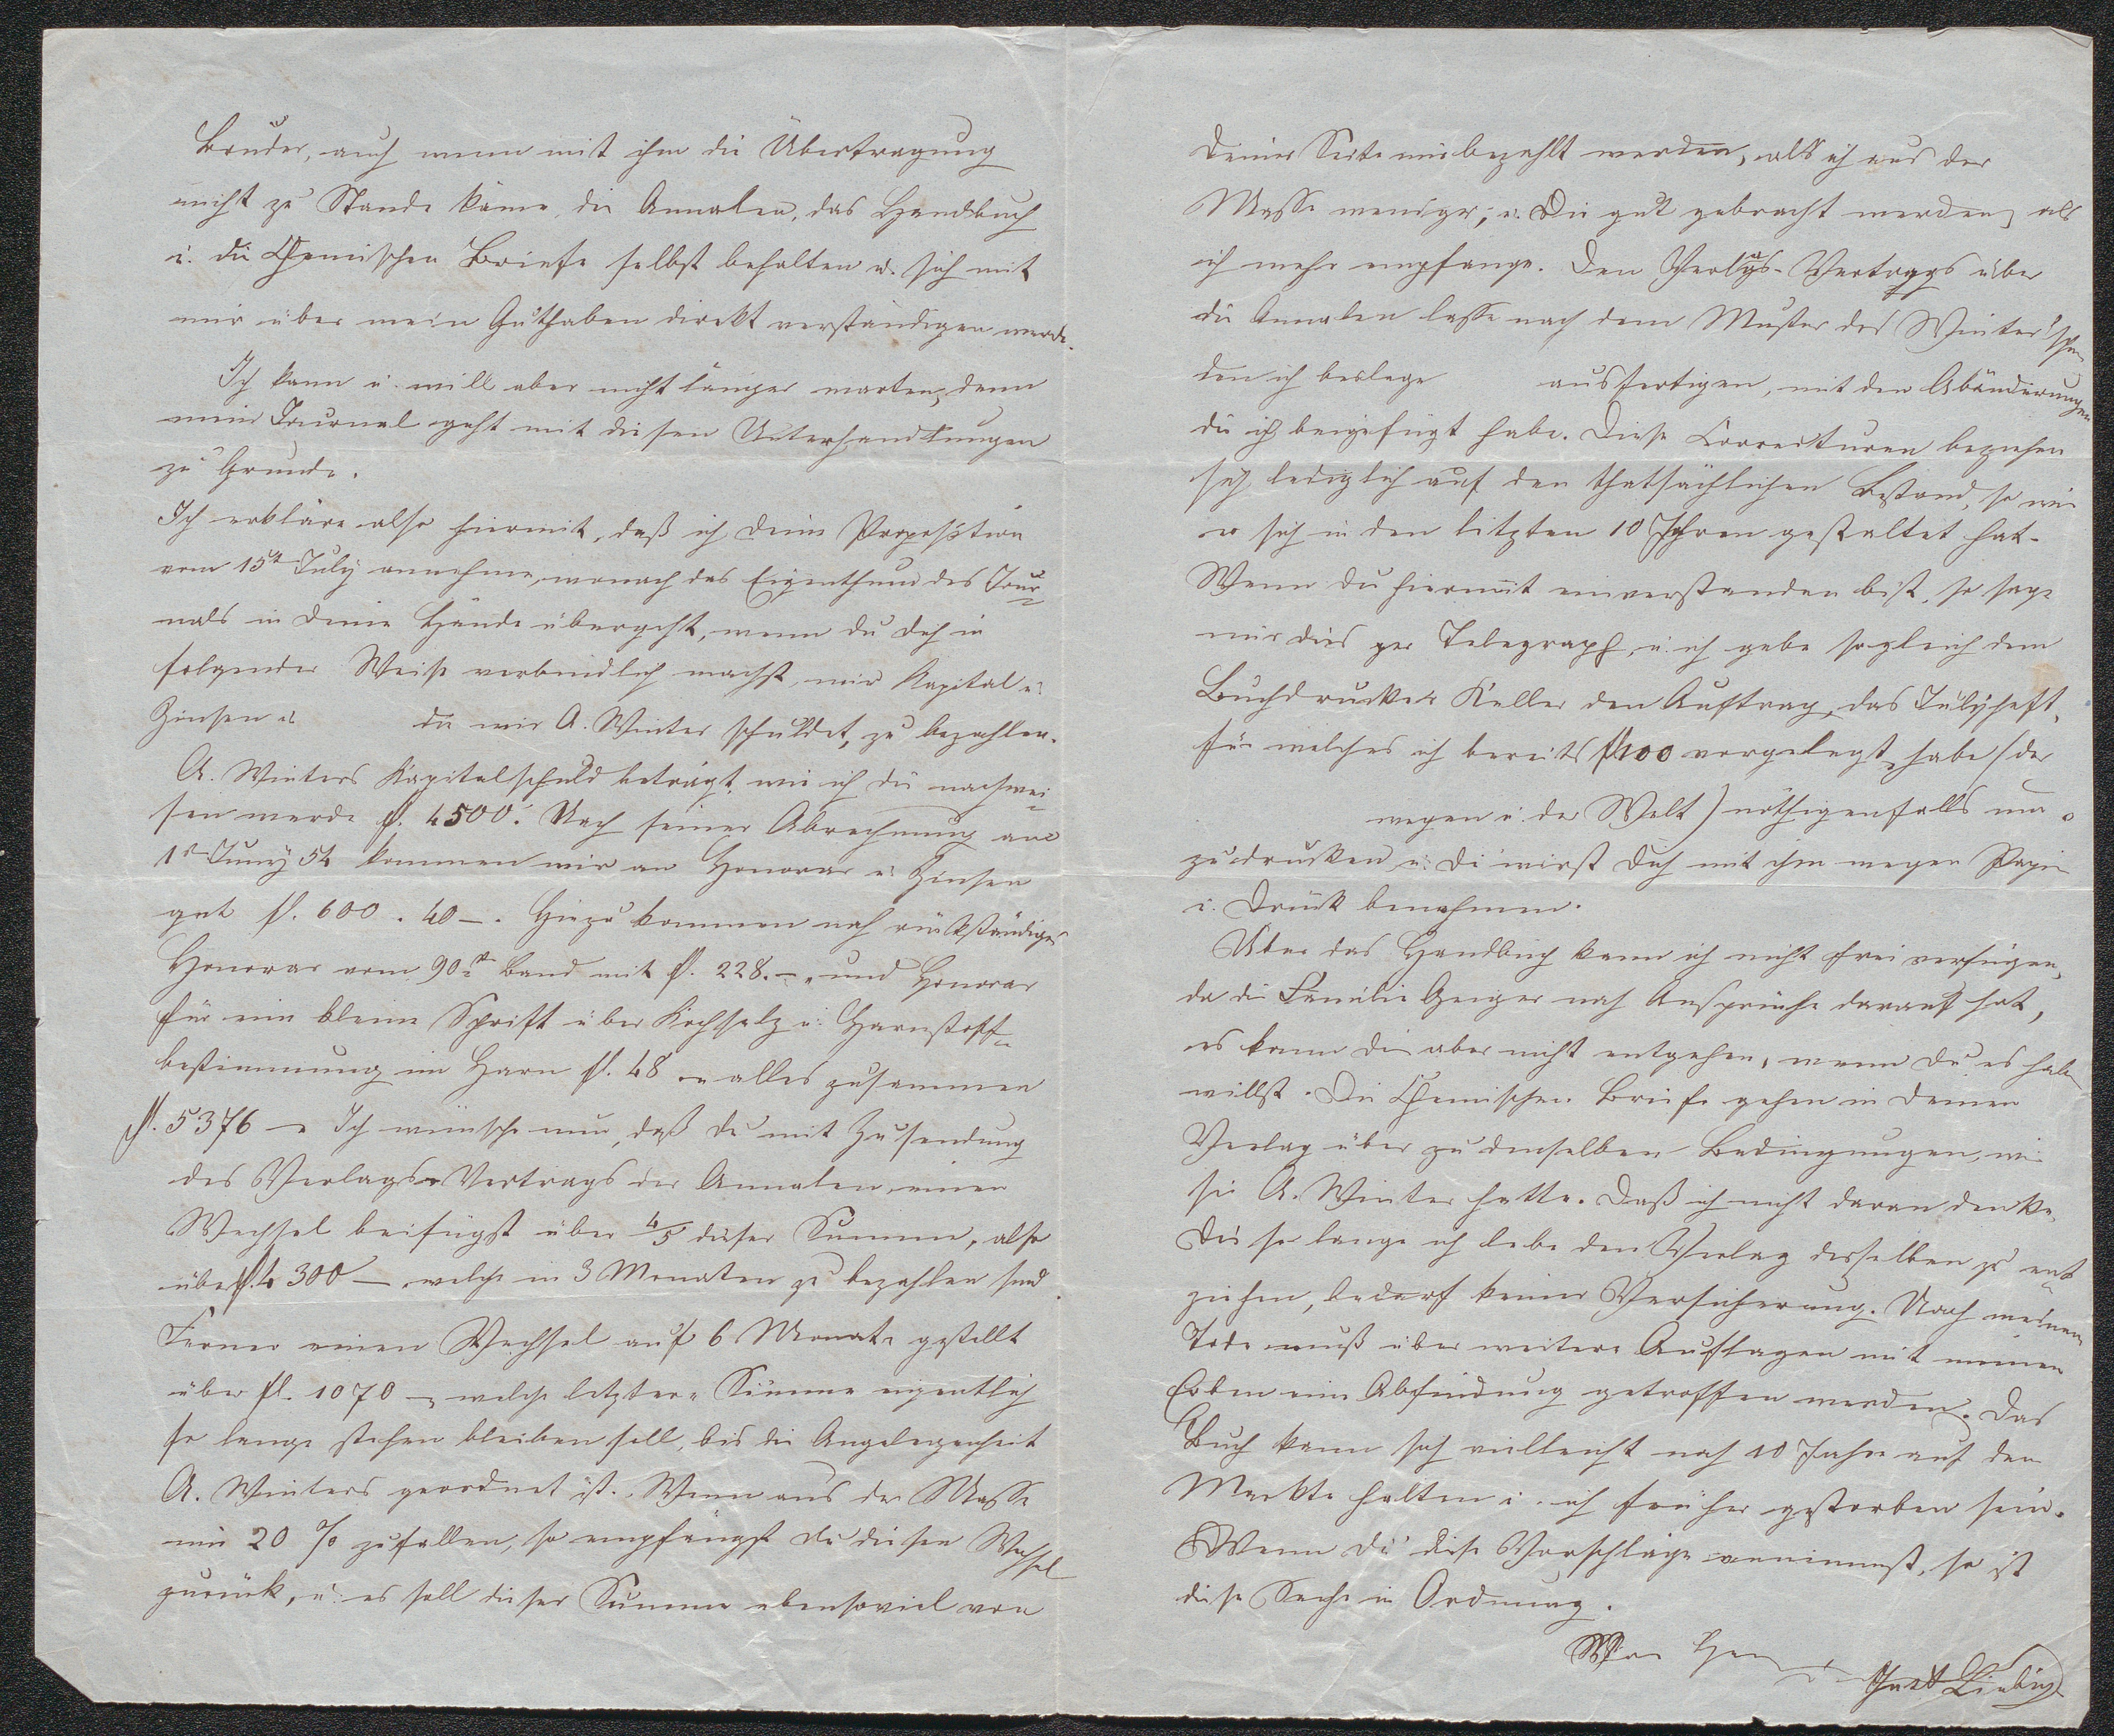 Bruder, auch wenn mit ihm die Übertragung
nicht zu Stande käme, die Annalen, das Handbuch
u. die Chemischen Briefe selbst behalten u. sich mit
mir über mein Guthaben direkt verständigen werde.
Ich kann u. will aber nicht länger warten, denn
mein Journal geht mit diesen Unterhandlungen
zu Grunde.
Ich erkläre also hiermit, daß ich Deine Proposition
vom 15t July annehme, wonach das Eigenthum des Jour-
nals in Deine Hände übergeht, wenn du dich in
folgender Weise verbindlich machst mir Kapital u.
Zinsen die mir A. Winter schuldet, zu bezahlen.
A. Winters Kapitalschuld beträgt, wie ich dir nachwei-
sen werde fl. 4500. Nach seiner Abrechnung am
1t Juny 54 kommen mir an Honorar u. Zinsen
gut fl. 600. 40 –. Hiezu kommen noch rückständiges
Honorar vom 90t Band mit fl. 228. – und Honorar
für eine kleine Schrift über Kochsalz u. Harnstoff-
bestimmung im Harn fl. 48 – alles zusammen
fl. 5376 – Ich wünsche nun, daß du mit Zusendung
des Verlags-Vertrags der Annalen einen
Wechsel beifügst über 4/5 dieser Summe, also
über fl. 4300 – welche in 3 Monaten zu bezahlen sind.
Ferner einen Wechsel auf 6 Monate gestellt
über fl. 1070 – welche letztere Summe eigentlich
so lange stehen bleiben soll, bis die Angelegenheit
A. Winters geordnet ist. Wenn aus der Masse
mir 20 % zufallen, so empfängst du diesen Wechsel
zurück, u. es soll dieser Summe ebensoviel von
Deiner Seite mir bezahlt werden, als ich aus der
Masse weniger, u. Dir gut gebracht werden, als
ich mehr empfange. Den Verlags-Vertrags über
die Annalen lasse nach dem Muster des Winter'schen
den ich beilege ausfertigen, mit den Abänderungen
die ich beigefügt habe. Diese Correcturen beziehen
sich lediglich auf den thatsächlichen Bestand, so wie
er sich in den letzten 10 Jahren gestaltet hat.
Wenn du hiermit einverstanden bist, so sage
mir dies per Telegraph, u. ich gebe sogleich dem
Buchdrucker Keller den Auftrag, das Julyheft,
für welches ich bereits fl 100 vorgelegt habe (der
wegen u. der Welt) nöthigenfalls um-
zudrucken u. Du wirst Dich mit ihm wegen Papier
u. Druck benehmen.
Über das Handbuch kann ich nicht frei verfügen,
da die Familie Geiger noch Ansprüche darauf hat,
es kann Dir aber nicht entgehen, wenn du es haben
willst. Die Chemischen Briefe gehen in Deinen
Verlag über zu denselben Bedingungen, wie
sie A. Winter hatte. Daß ich nicht daran denke,
Dir so lange ich lebe den Verlag desselben zu ent-
ziehen, bedarf keiner Versicherung. Nach meinem
Tode muß über weitere Auflagen mit meinen
Erben eine Abfindung getroffen werden. Das
Buch kann sich vielleicht noch 10 Jahre auf dem
Markte halten u. ich früher gestorben sein.
Wenn du diese Vorschläge annimmst, so ist
diese Sache in Ordnung.
Von Herzen
Just Liebig